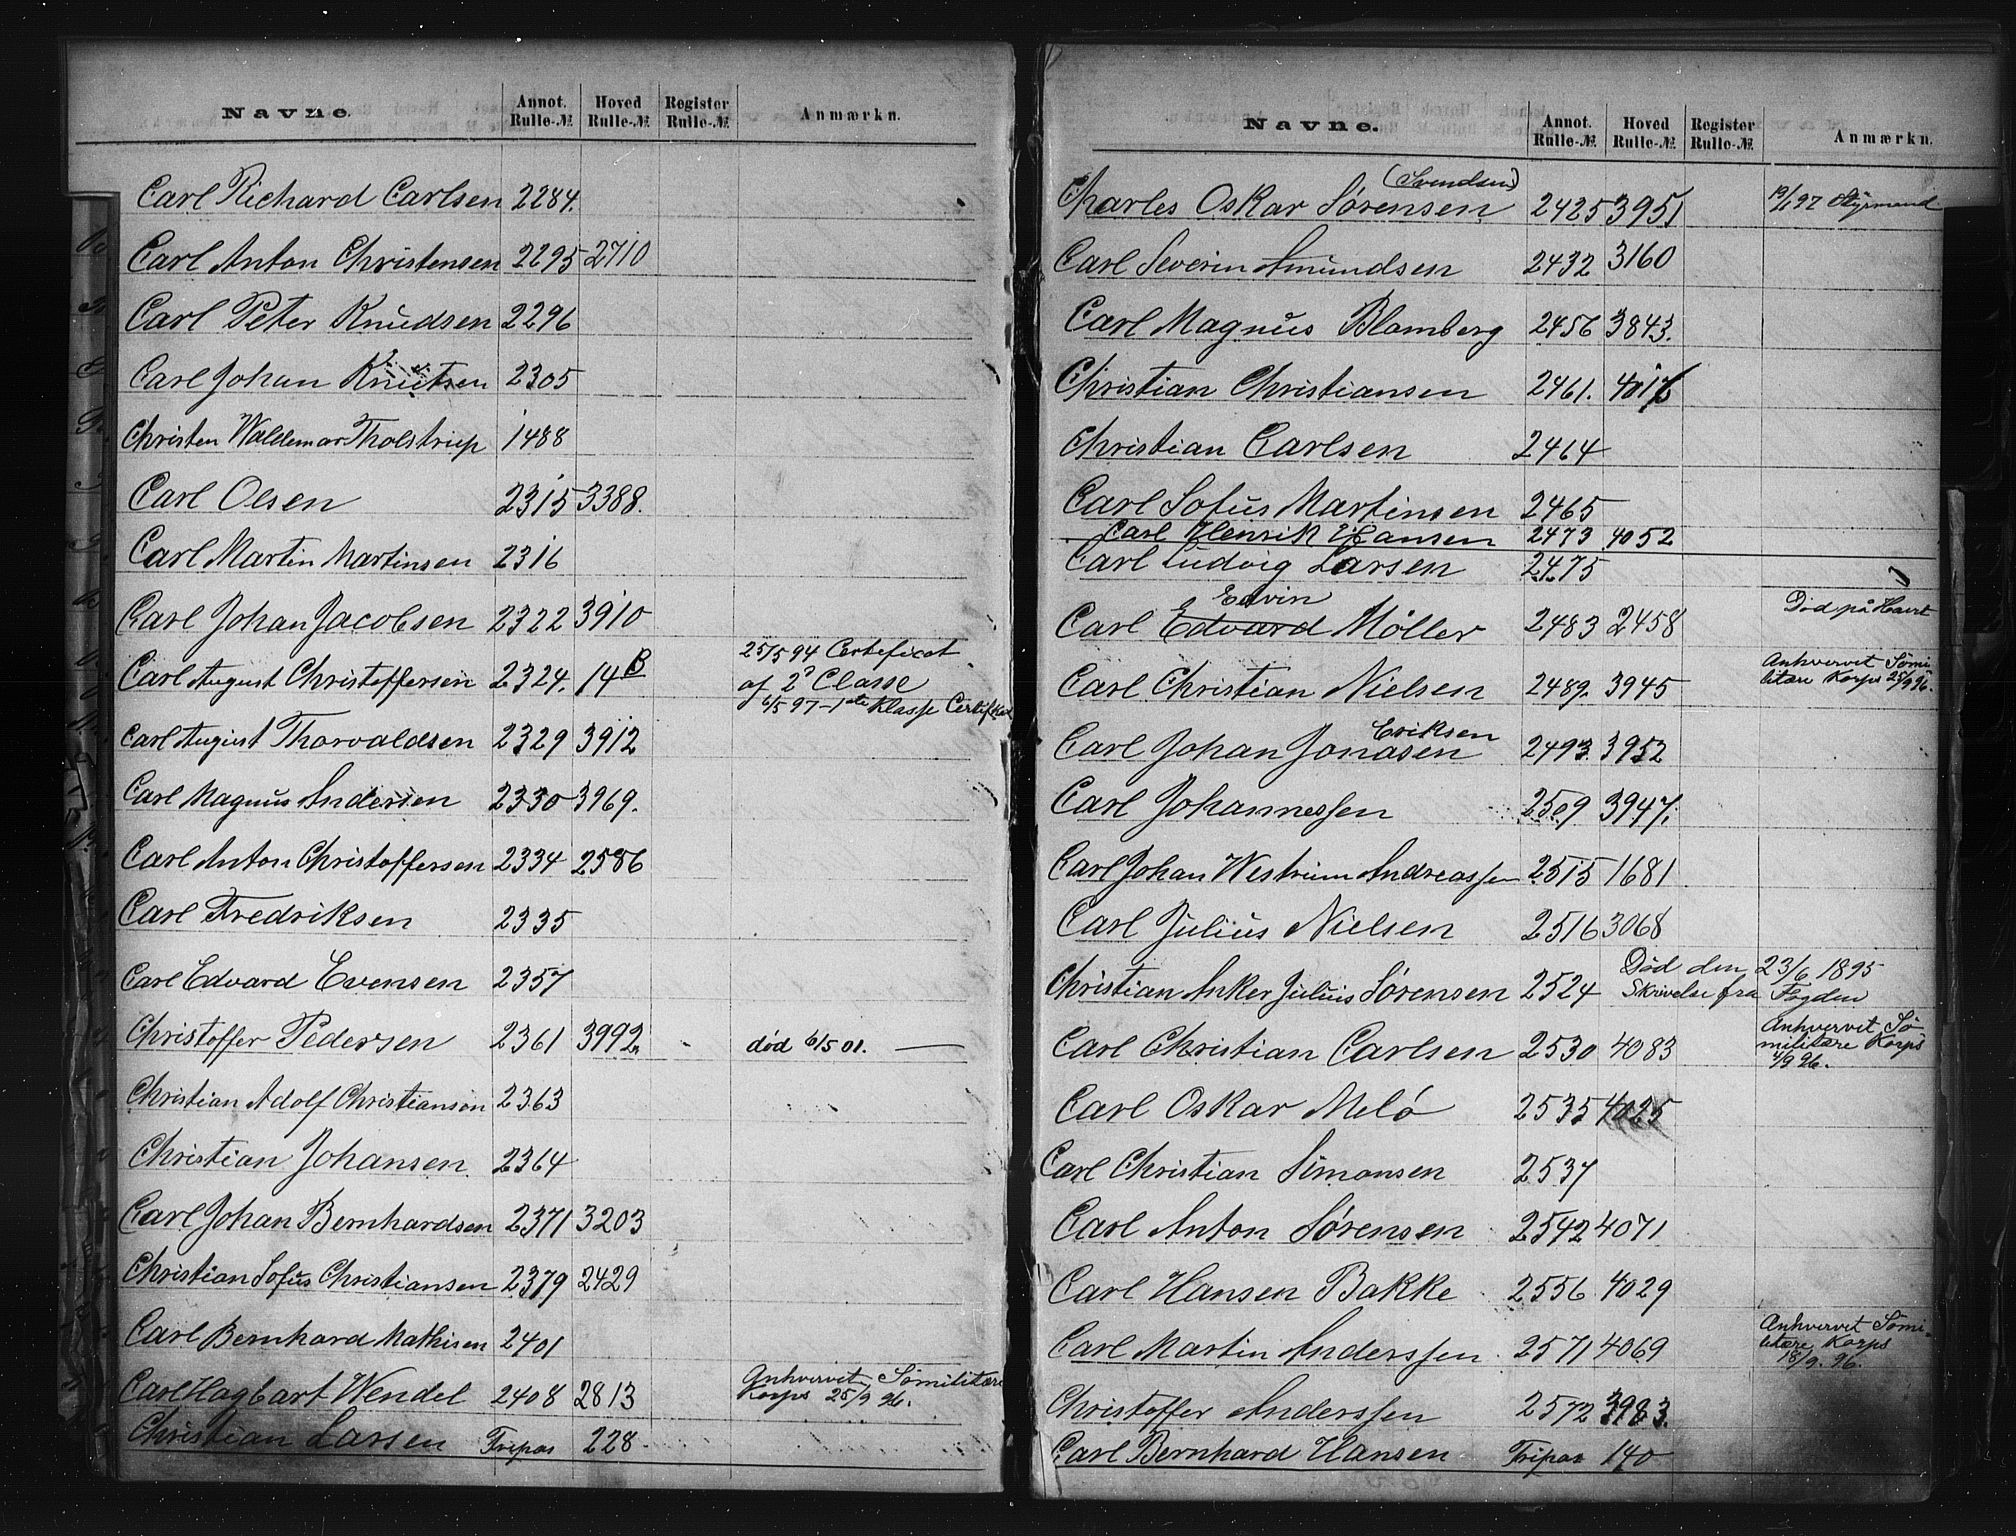 Navne. Annot. Rulle-№ Hoved Rulle-№ Register Rulle-№ Anmærkn.
Carl Richard Carlsen 2284.
Carl Anton Christensen 2295 2710
Carl Peter Knudsen 2296
Carl Johan Knutsen 2305
Christen Waldemar Tholstrup 1488
Carl Olsen 2315 3388.
Carl Martin Martinsen 2316
Carl Johan Jacobsen 2322 3910
25/5 94 Certeficat
Carl August Christoffersen 2324. 14 B af 2 Classe
6/5 97 - 1ste Klasse Certifikat
Carl August Thorvaldsen 2329 3912
Carl Magnus Andersen 2330 3969.
Carl Anton Christoffersen 2334 2586
Carl Fredriksen 2335
Carl Edvard Evensen 2357
Christoffer Pedersen 2361 3992. død 6/5 01.
Christian Adolf Christiansen 2363
Christian Johansen 2364
Carl Johan Bernhardsen 2371 3203
Christian Sofus Christiansen 2379 2429
Carl Bernhard Mathisen 2401
Anhvervet Sömilitære
Carl Hagbart Wendel 2408 2813 Korps 25/9 96.
Christian Larsen Fripas 228
Navne. Annot. Rulle-№ Hoved Rulle-№ Register Rulle-№ Anmærkn.
(Svendsen)
Charles Oskar Sørensen 2425 3951 Styrmand
Carl Severin Amundsen 2432 3160
Carl Magnus Blomberg 2456 3843.
Christian Christiansen 2461.
Christian Carlsen 2464
Carl Sofus Martinsen 2465
Carl Henrik Hansen 2473 4052
Carl Ludvig Larsen 2475
Edvin
Carl Edvard Møller 2483 2458 Död på Havet
Anhvervet Sömi-
Carl Christian Nielsen 2489. 3945 litære Korps 25/9 96.
Eriksen
Carl Johan Jonasen 2493. 3952
Carl Johannessen 2509 3947.
Carl Johan Westrum Andreassen 2515 1681
Carl Julius Nielsen 2516 3068
Død den 23/6 1895
Christian Anker Julius Sørensen 2524 Skrivelse fra Fogden
Anhvervet Sö-
Carl Christian Carlsen 2530 4083 militære Korps
/9 96.
Carl Oskar Melø 2535 4025
Carl Christian Simonsen 2537
Carl Anton Sørensen 2542 4071
Carl Hansen Bakke 2556 4029
Anhvervet Sömi-
Carl Martin Anderssen 2571 4069 litære Korps
18/9. 96.
Christoffer Anderssen 2572 3983.
Carl Bernhard Hansen Fripas 140